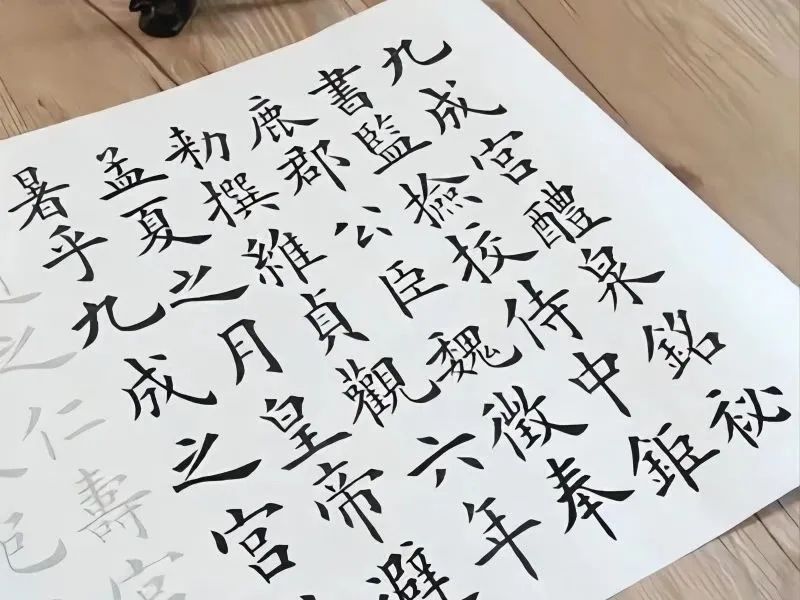 九成宮醴泉銘祕
書監撿挍侍中鉅
鹿郡公臣魏徵奉
勅撰維貞觀六年
孟夏之月皇帝避
暑乎九成之宮
之仁壽宮